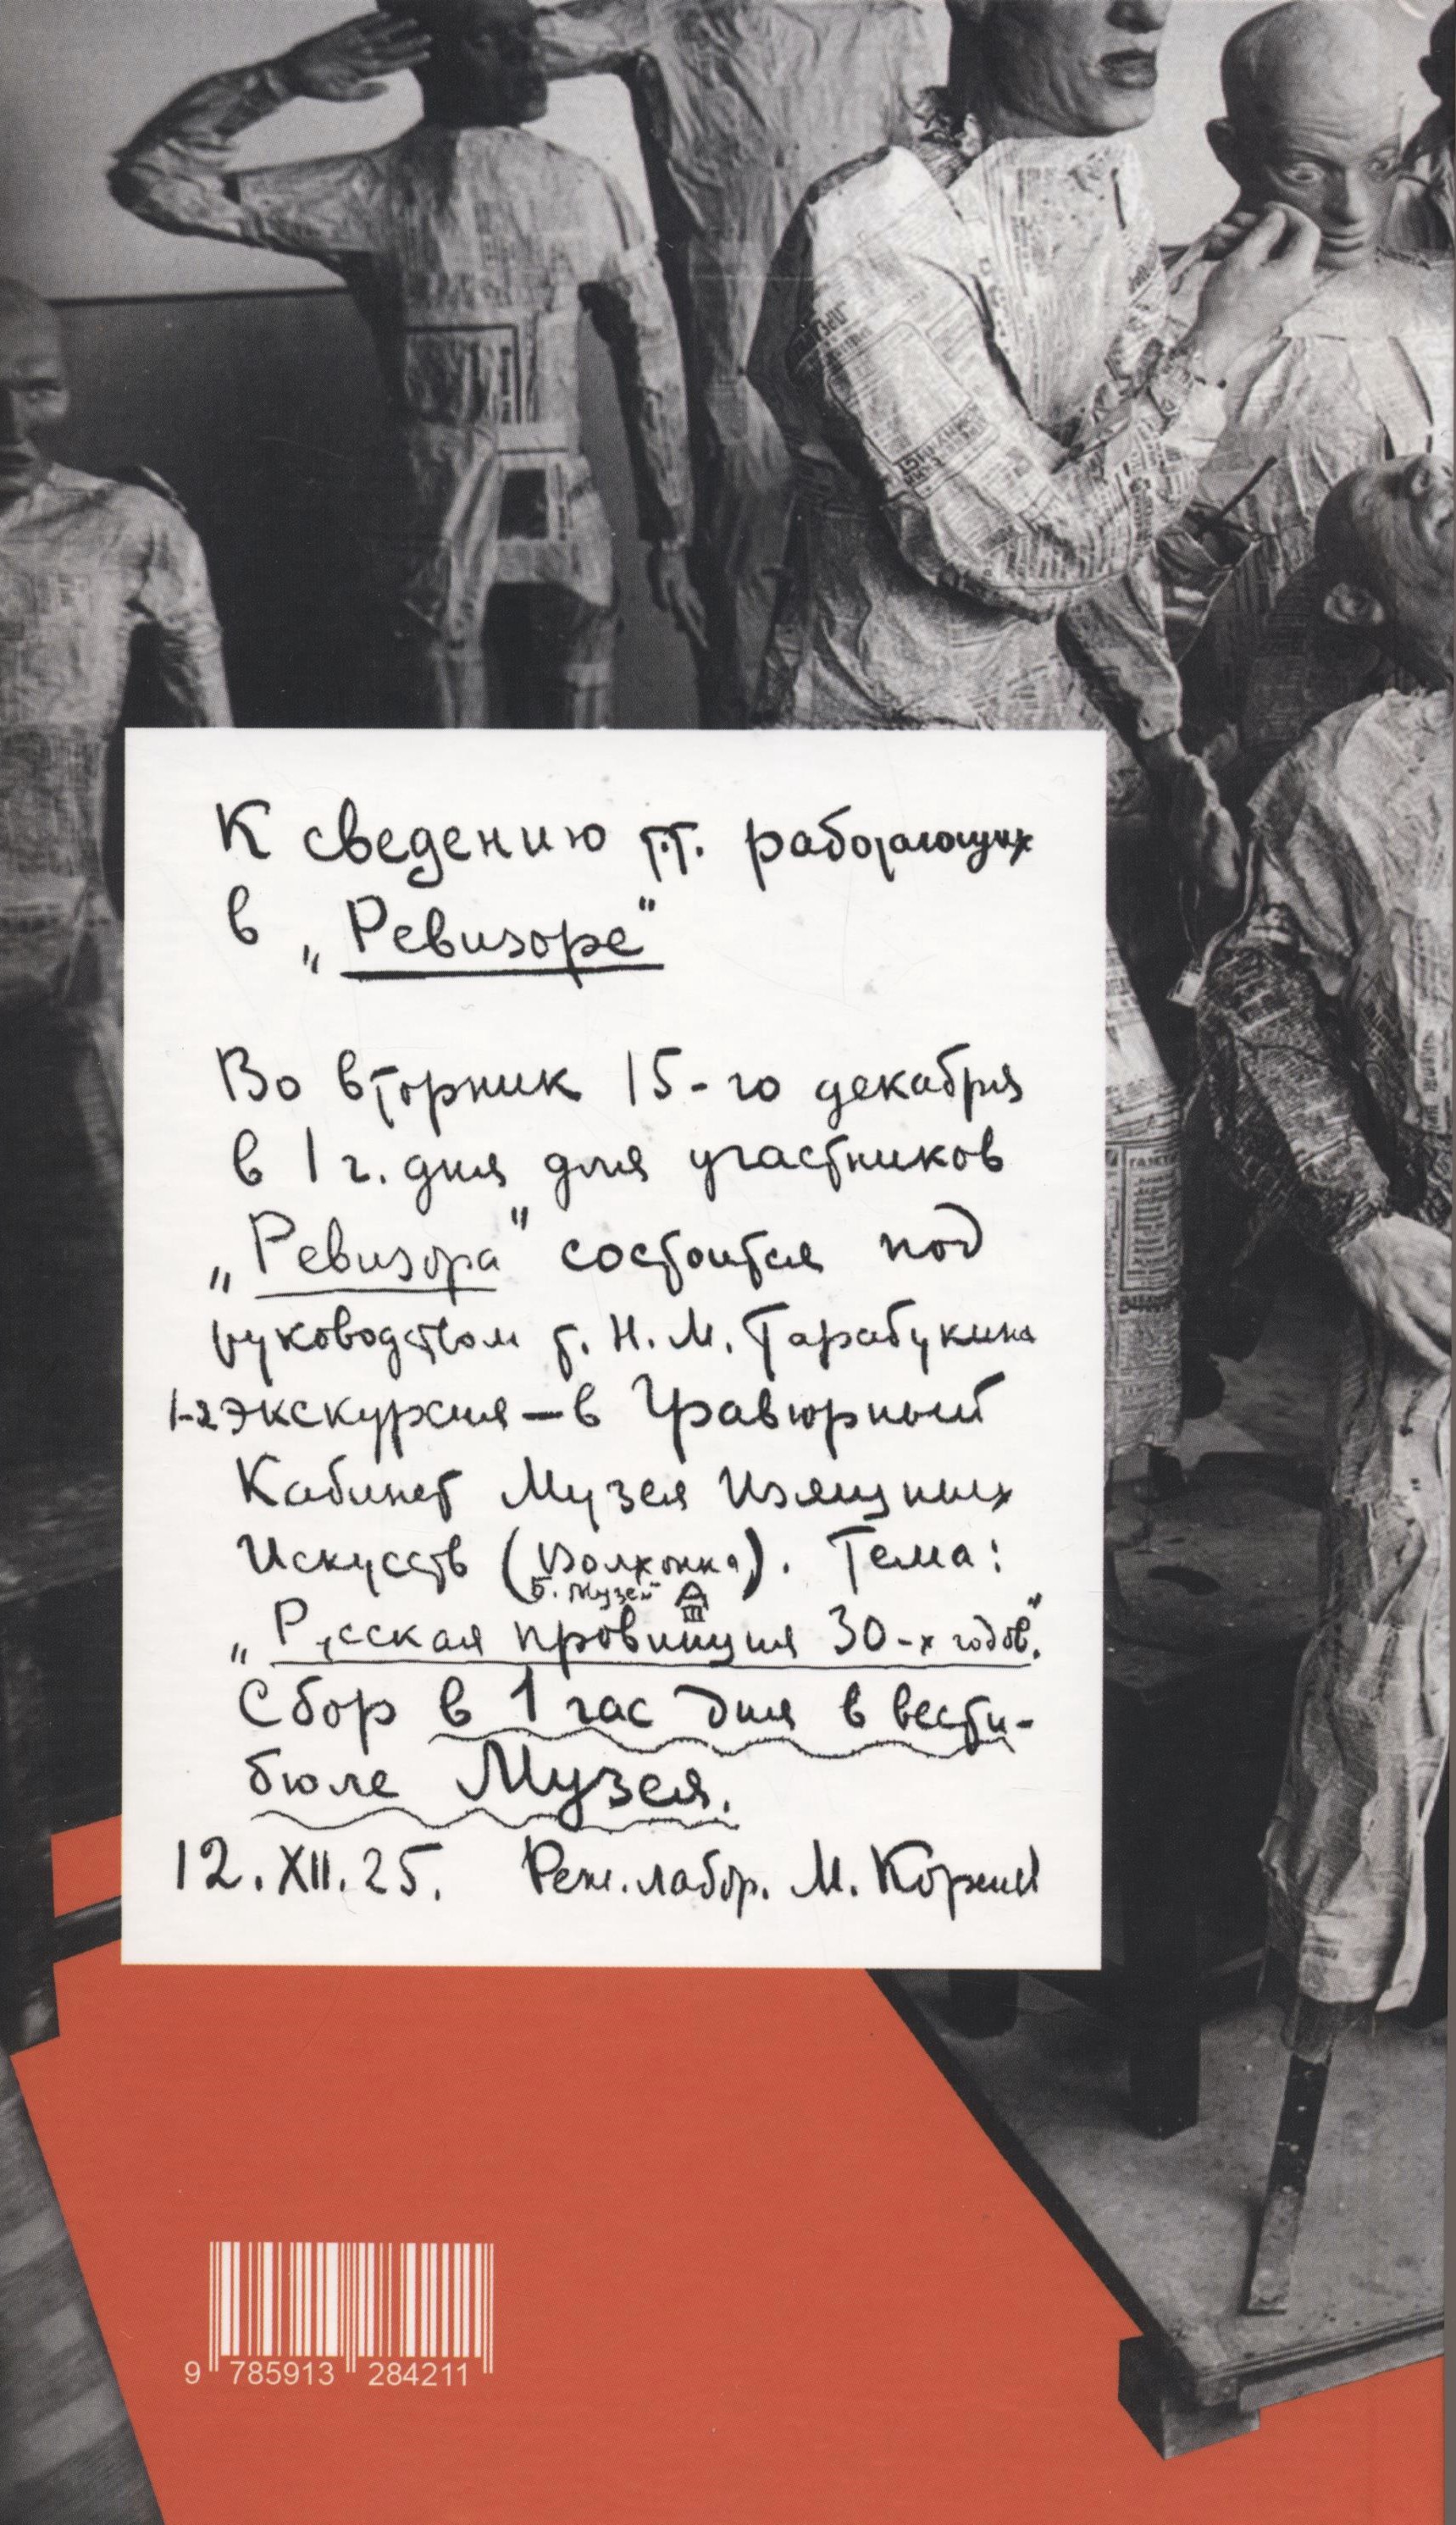 К сведению т.т. работающих
в „Ревизоре“
Во вторник 15-го декабря
в 1 ч. дня для участников
„Ревизора“ состоится под
руководством т. Н. М. Тарабукина
1-я экскурсия — в Гравюрный
Кабинет Музея Изящных
Искусств (Волхонка). Тема:
Б. Музей
„Русская провинция 30-х годов.“
Сбор в 1 час дня в вести-
бюле Музея.
12.XII.25. Реж. лабор. М. Коренев
9 785913 284211